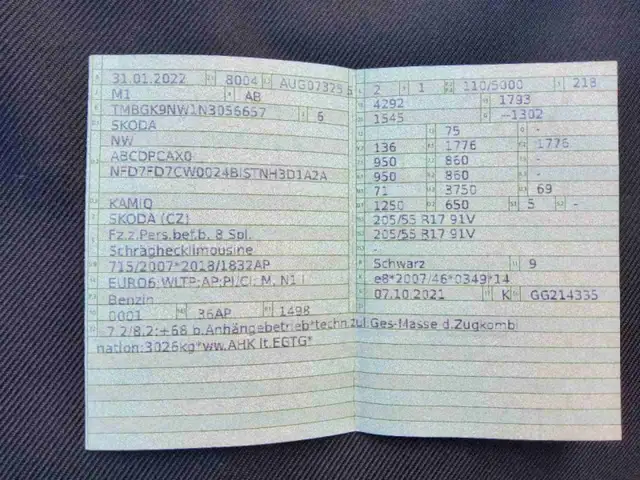 31.01.2022 8004 AUG07325 5
M1 AB
TMBGK9NW1N3056657 6
SKODA
NW
ABCDPCAX0
NFD7FD7CW0024BISTNH3D1A2A
KAMIQ
SKODA (CZ)
Fz.z.Pers.bef.b. 8 Spl.
Schräghecklimousine
715/2007*2018/1832AP
EURO6;WLTP;AP;PI/CI; M, N1 I
Benzin
0001 36AP 1498
7.2/8.2:+68 b.Anhängebetrieb*techn.zul.Ges-Masse d.Zugkombi
nation:3026kg*ww.AHK lt.EGTG*
2 1 110/5000 218
4292 1793
1545 -1302
75 -
136 1776 1776
950 860 -
950 860 -
71 3750 69
1250 650 5 -
205/55 R17 91V
205/55 R17 91V
-
Schwarz 9
e8*2007/46*0349*14
07.10.2021 K GG214335